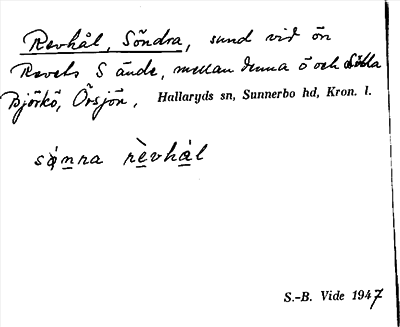 Revhål, Söndra, sund vid ön
Revets S ände, mellan denna ö och Lilla
Björkö, Örsjön, Hallaryds sn, Sunnerbo hd, Kron. l.
sǫ̀nra rèvhål
S.-B. Vide 1947